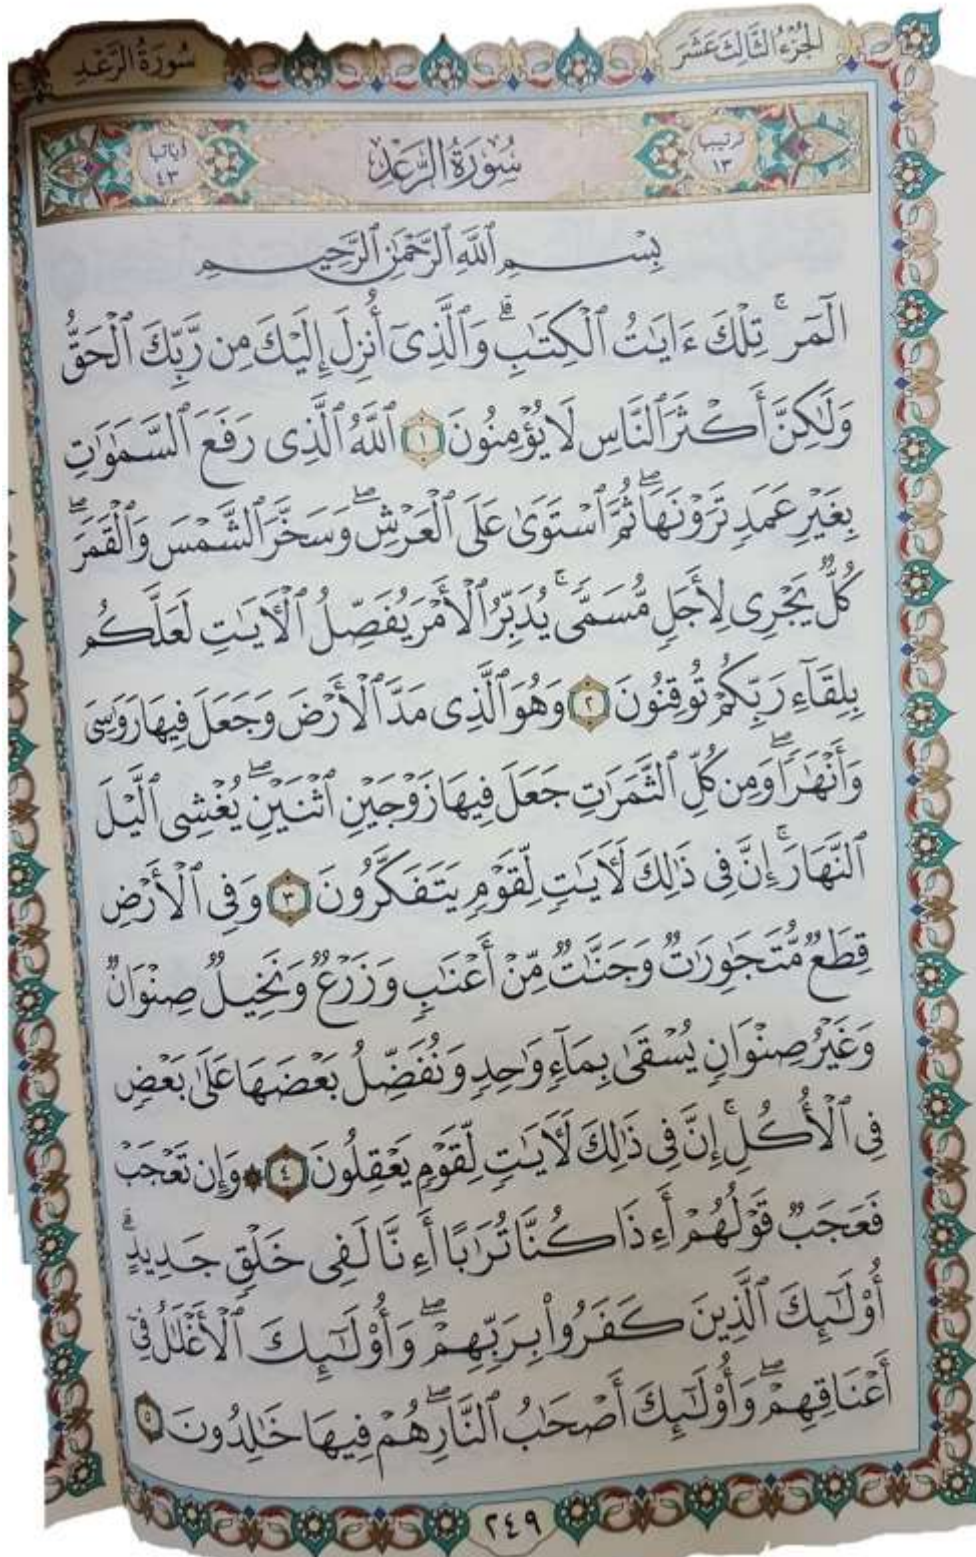 الجزء الثالث عشر
سورة الرعد
ترتيبها ١٣
سُورَةُ الرَّعْدِ
آياتها ٤٣
بِسْمِ ٱللَّهِ ٱلرَّحْمَٰنِ ٱلرَّحِيمِ
الٓمٓرۚ تِلْكَ ءَايَٰتُ ٱلْكِتَٰبِۗ وَٱلَّذِىٓ أُنزِلَ إِلَيْكَ مِن رَّبِّكَ ٱلْحَقُّ
وَلَٰكِنَّ أَكْثَرَ ٱلنَّاسِ لَا يُؤْمِنُونَ ١ ٱللَّهُ ٱلَّذِى رَفَعَ ٱلسَّمَٰوَٰتِ
بِغَيْرِ عَمَدٍ تَرَوْنَهَاۖ ثُمَّ ٱسْتَوَىٰ عَلَى ٱلْعَرْشِۖ وَسَخَّرَ ٱلشَّمْسَ وَٱلْقَمَرَۖ
كُلٌّ يَجْرِى لِأَجَلٍ مُّسَمًّىۚ يُدَبِّرُ ٱلْأَمْرَ يُفَصِّلُ ٱلْءَايَٰتِ لَعَلَّكُم
بِلِقَآءِ رَبِّكُمْ تُوقِنُونَ ٢ وَهُوَ ٱلَّذِى مَدَّ ٱلْأَرْضَ وَجَعَلَ فِيهَا رَوَٰسِىَ
وَأَنْهَٰرًاۖ وَمِن كُلِّ ٱلثَّمَرَٰتِ جَعَلَ فِيهَا زَوْجَيْنِ ٱثْنَيْنِۖ يُغْشِى ٱلَّيْلَ
ٱلنَّهَارَۚ إِنَّ فِى ذَٰلِكَ لَءَايَٰتٍ لِّقَوْمٍ يَتَفَكَّرُونَ ٣ وَفِى ٱلْأَرْضِ
قِطَعٌ مُّتَجَٰوِرَٰتٌ وَجَنَّٰتٌ مِّنْ أَعْنَٰبٍ وَزَرْعٌ وَنَخِيلٌ صِنْوَانٌ
وَغَيْرُ صِنْوَانٍ يُسْقَىٰ بِمَآءٍ وَٰحِدٍ وَنُفَضِّلُ بَعْضَهَا عَلَىٰ بَعْضٍ
فِى ٱلْأُكُلِۚ إِنَّ فِى ذَٰلِكَ لَءَايَٰتٍ لِّقَوْمٍ يَعْقِلُونَ ٤ ۞ وَإِن تَعْجَبْ
فَعَجَبٌ قَوْلُهُمْ أَءِذَا كُنَّا تُرَٰبًا أَءِنَّا لَفِى خَلْقٍ جَدِيدٍۗ
أُو۟لَٰٓئِكَ ٱلَّذِينَ كَفَرُوا۟ بِرَبِّهِمْۖ وَأُو۟لَٰٓئِكَ ٱلْأَغْلَٰلُ فِىٓ
أَعْنَاقِهِمْۖ وَأُو۟لَٰٓئِكَ أَصْحَٰبُ ٱلنَّارِۖ هُمْ فِيهَا خَٰلِدُونَ ٥
٢٤٩